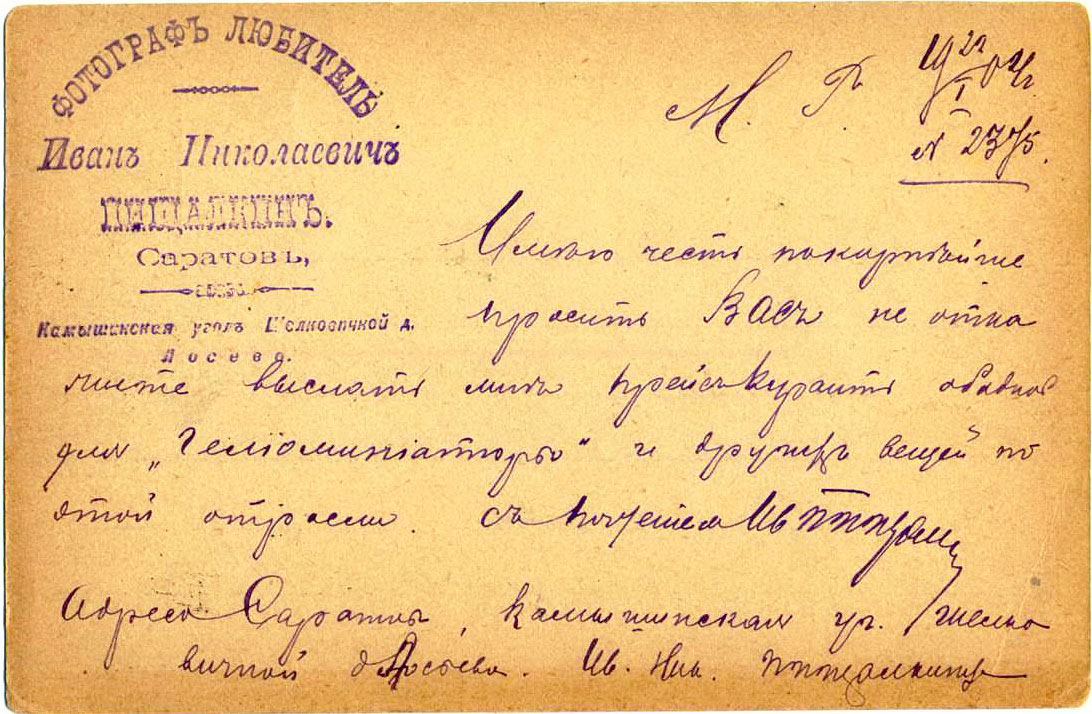 ФОТОГРАФЪ ЛЮБИТЕЛЬ
Иванъ Николаевичъ
ПИЩАЛКИНЪ.
Саратовъ,
Камышинская уголъ Шелковичной д.
Лосева.
М. Г.
19 22/I 04 г.
№ 2375.
Имѣю честь покорнѣйше
просить Васъ не отка
жите выслать мнѣ прейсъ курантъ
для „Гелiоминiатюръ“ и другихъ вещей по
этой отрасли. Съ почтенiем Ив Пищалк
Адресъ Саратовъ, Камышинская уг. Шелко
вичной д Лосева. Ив. Ник. Пищалкину